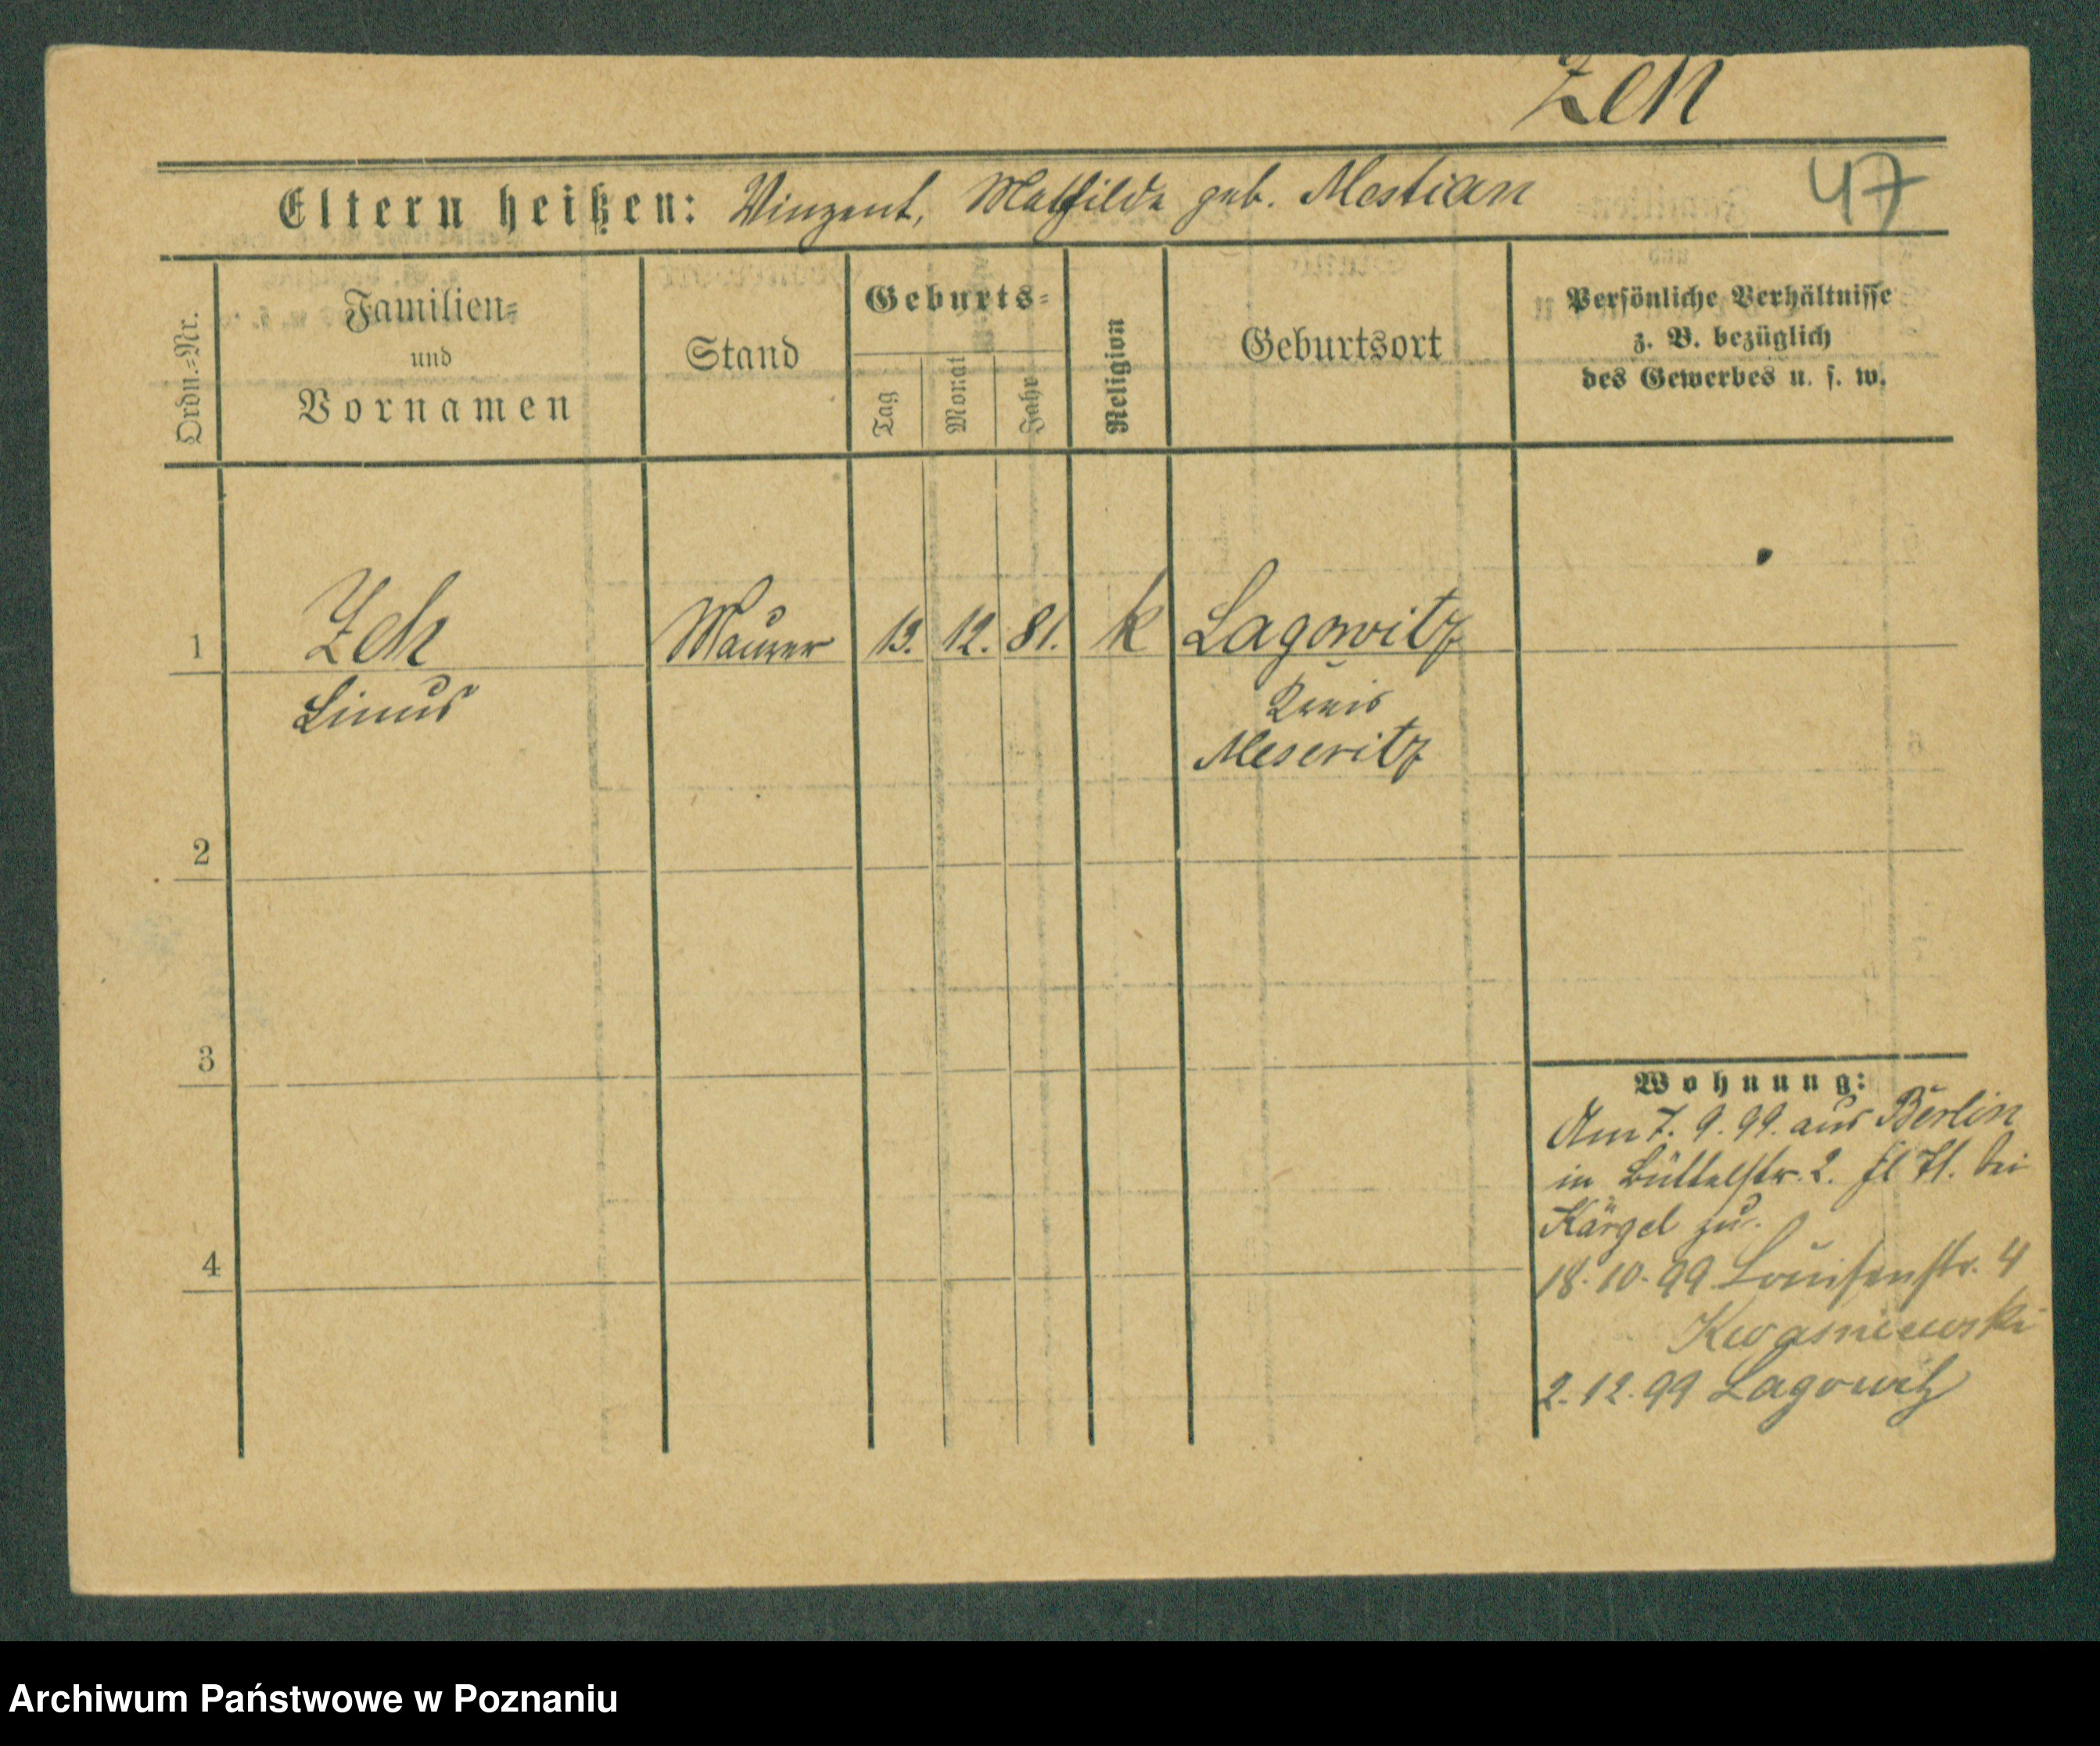 Zeh
Eltern heißen: Vinzent, Mathilde geb. Mestian
47
Ordn.=Nr.
Familien=
und
Vornamen
Stand
Geburts=
Tag
Monat
Jahr
Religion
Geburtsort
Persönliche Verhältnisse
z. B. bezüglich
des Gewerbes u. s. w.
1 Zeh Maurer 13. 12. 81. k Lagowitz
Linus
Kreis
Meseritz
2
3
4
Wohnung:
Am 7. 9. 99. aus Berlin
in Büttelstr. 2. bei
Kärgel zu.
18. 10. 99 Louisenstr. 4
Kwasniewski
2. 12. 99 Lagowitz
Archiwum Państwowe w Poznaniu